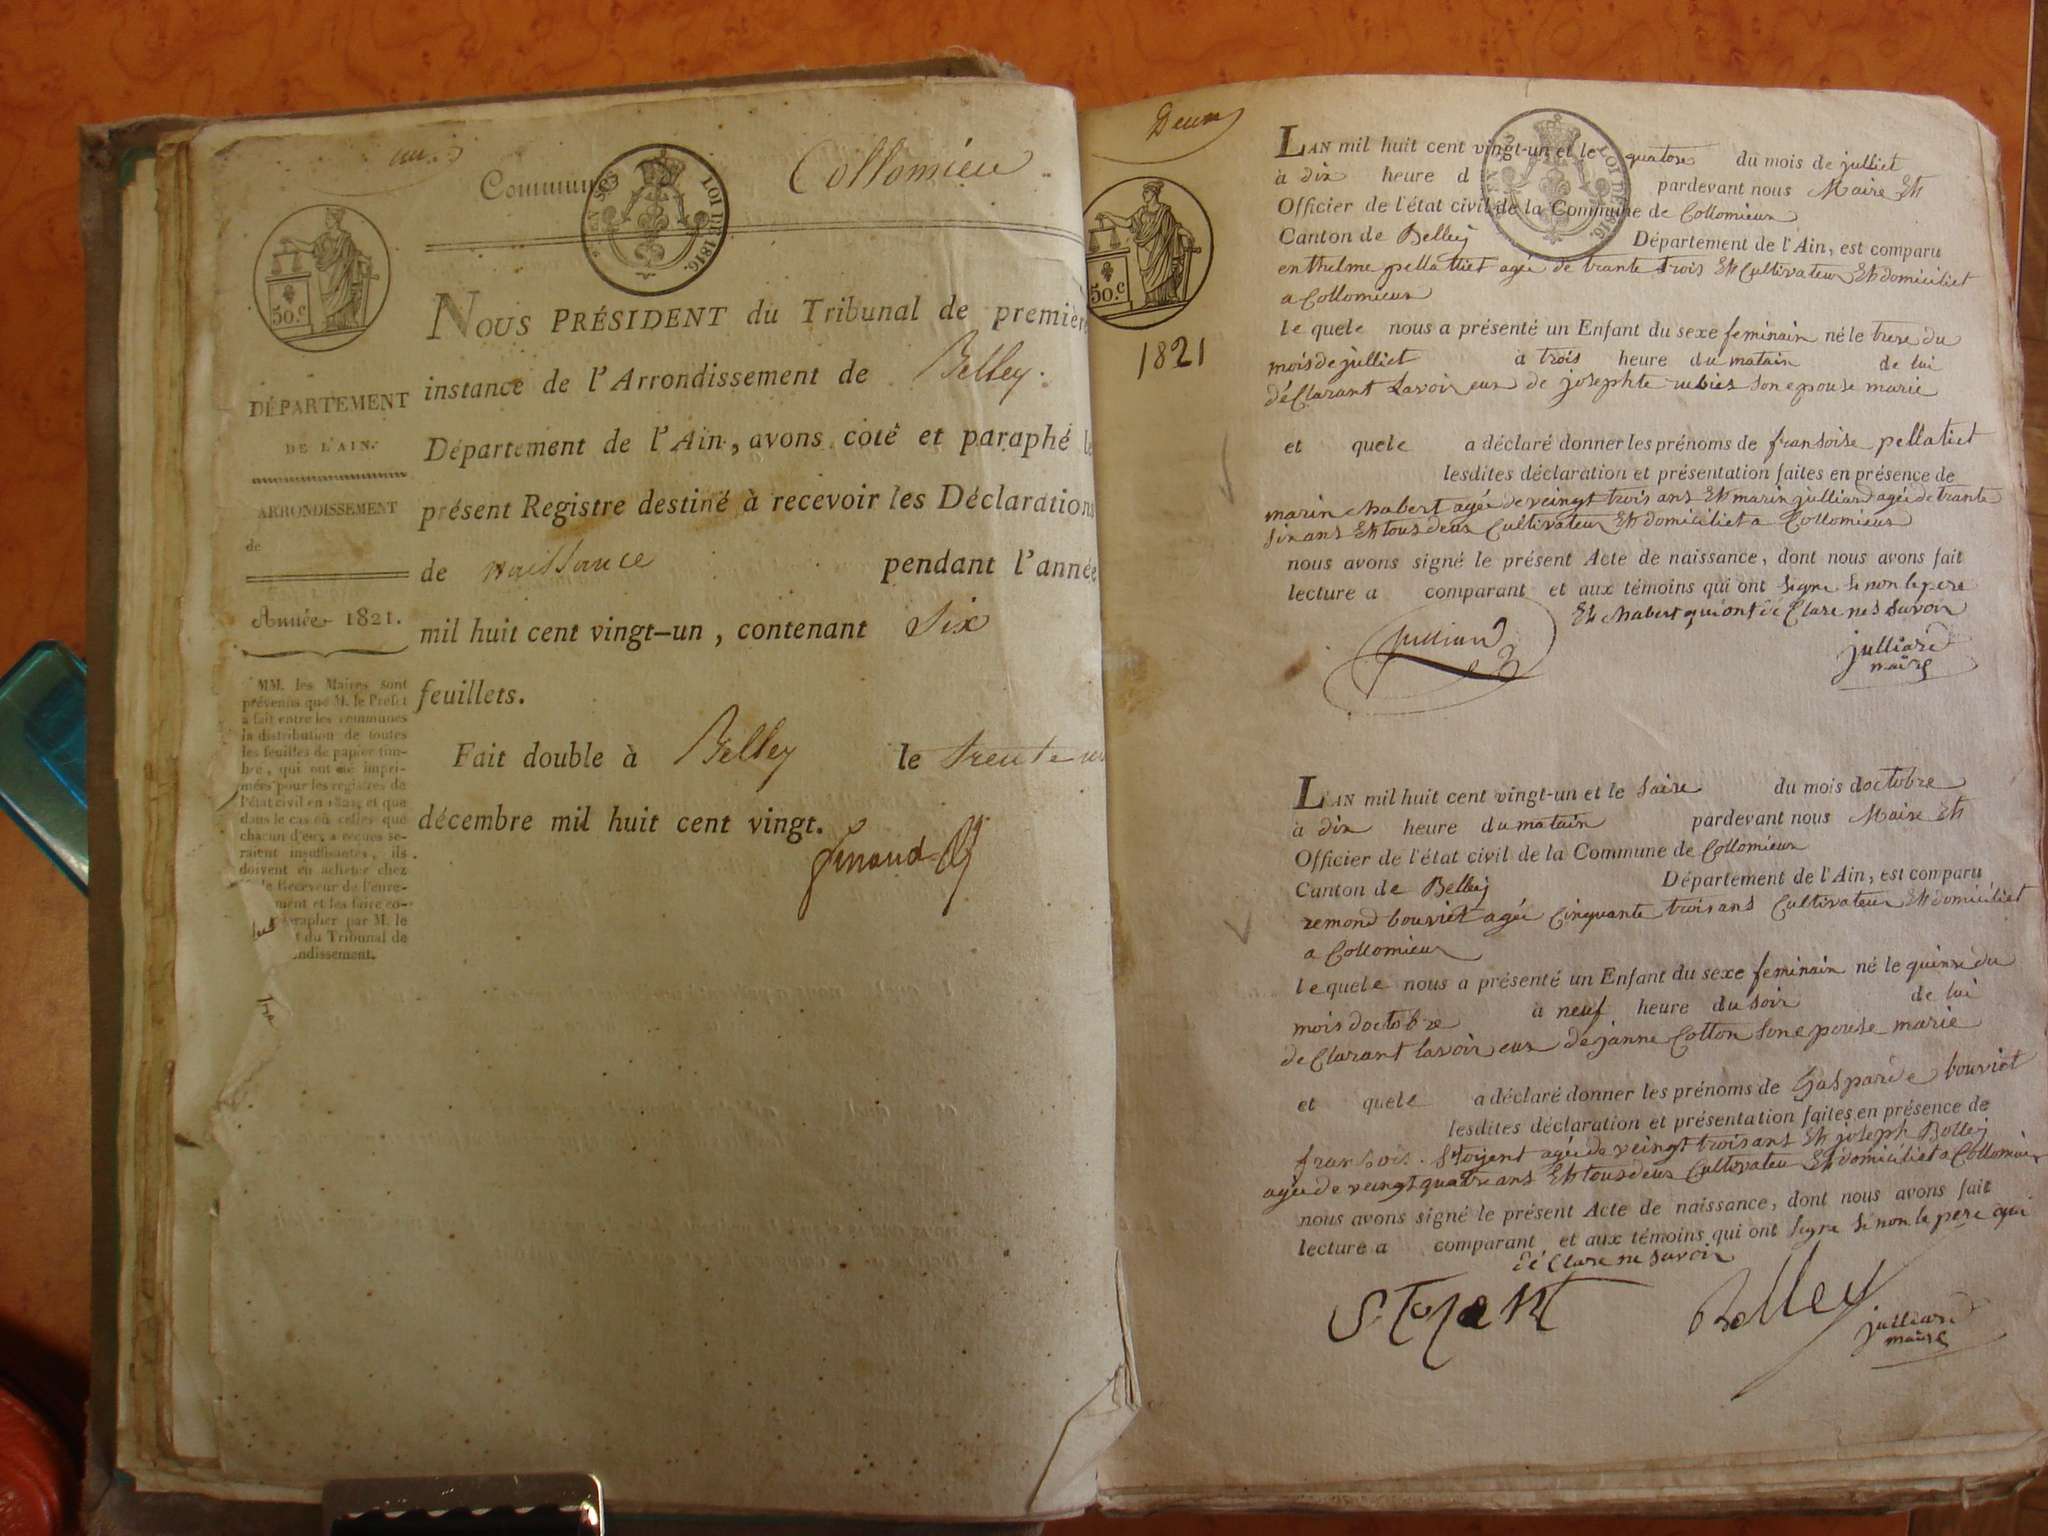 Commune
Collomieu
LOI DE 1816.
50.c
DÉPARTEMENT
DE L'AIN.
ARRONDISSEMENT
de
Année 1821.
MM. les Maires sont
prévenus que M. le Préfet
a fait entre les communes
la distribution de toutes
les feuilles de papier tim-
bré, qui ont été impri-
mées pour les registres de
l'état civil en 1821, et que
dans le cas où celles que
chacun d'eux a reçues se-
raient insuffisantes, ils
doivent en acheter chez
le Receveur de l'enre-
ment et les faire co-
grapher par M. le
t du Tribunal de
ndissement.
NOUS PRÉSIDENT du Tribunal de premièr
instance de l'Arrondissement de Belley.
Département de l'Ain, avons coté et paraphé le
présent Registre destiné à recevoir les Déclarations
de naissance pendant l'année
mil huit cent vingt-un, contenant Six
feuillets.
Fait double à Belley le trente un
décembre mil huit cent vingt.
Deux
50.c
1821
LOI DE 1816.
LAN mil huit cent vingt-un et le quatorse du mois de julliet
à dix heure d pardevant nous Maire Et
Officier de l'état civil de la Commune de Collomieux
Canton de Belley Département de l'Ain, est comparu
enthelme pellatiet agée de trante trois Et Cultivateur Et domiciliet
a Collomieux
le quele nous a présenté un Enfant du sexe feminain né le trese du
mois de julliet à trois heure du matain de lui
déClarant Lavoir eux de josephte rubies son epouse marie
et quele a déclaré donner les prénoms de fransoise pellatiet
lesdites déclaration et présentation faites en présence de
marin Chabert agée de veingt trois ans Et marin julliard agée de trante
six ans Et tous deux Cultivateur Et domiciliet a Collomieux
nous avons signé le présent Acte de naissance, dont nous avons fait
lecture a comparant et aux témoins qui ont signe si non le pere
Et Chabert qui ont dé Clare nes savoir
julliard
julliard
maire
L'AN mil huit cent vingt-un et le saise du mois doctobre
à dix heure du matain pardevant nous Maire Et
Officier de l'état civil de la Commune de Collomieux
Canton de Belley Département de l'Ain, est comparu
remond bouviet agée Cinquante trois ans Cultivateur Et domiciliet
a Collomieux
le quele nous a présenté un Enfant du sexe feminain né le quinse du
mois doctobre à neuf heure du soir de lui
de Clarant lavoir eux de janne Cotton son epouse marie
et quele a déclaré donner les prénoms de Gasparde bouviet
lesdites déclaration et présentation faites en présence de
fransois Stoyent agée de veingt trois ans Et joseph Bolley
agée de veingt quatre ans Et tous deux Cultivateur Et domiciliet a Collomieux
nous avons signé le présent Acte de naissance, dont nous avons fait
lecture a comparant et aux témoins qui ont signe si non le pere qui
dé Clare ne savoir
Bolley
julliard
maire